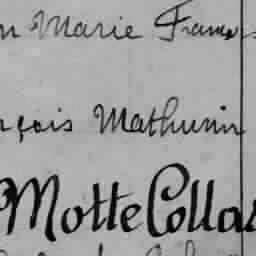 n Marie François
nçois Mathurin
Motte Collas